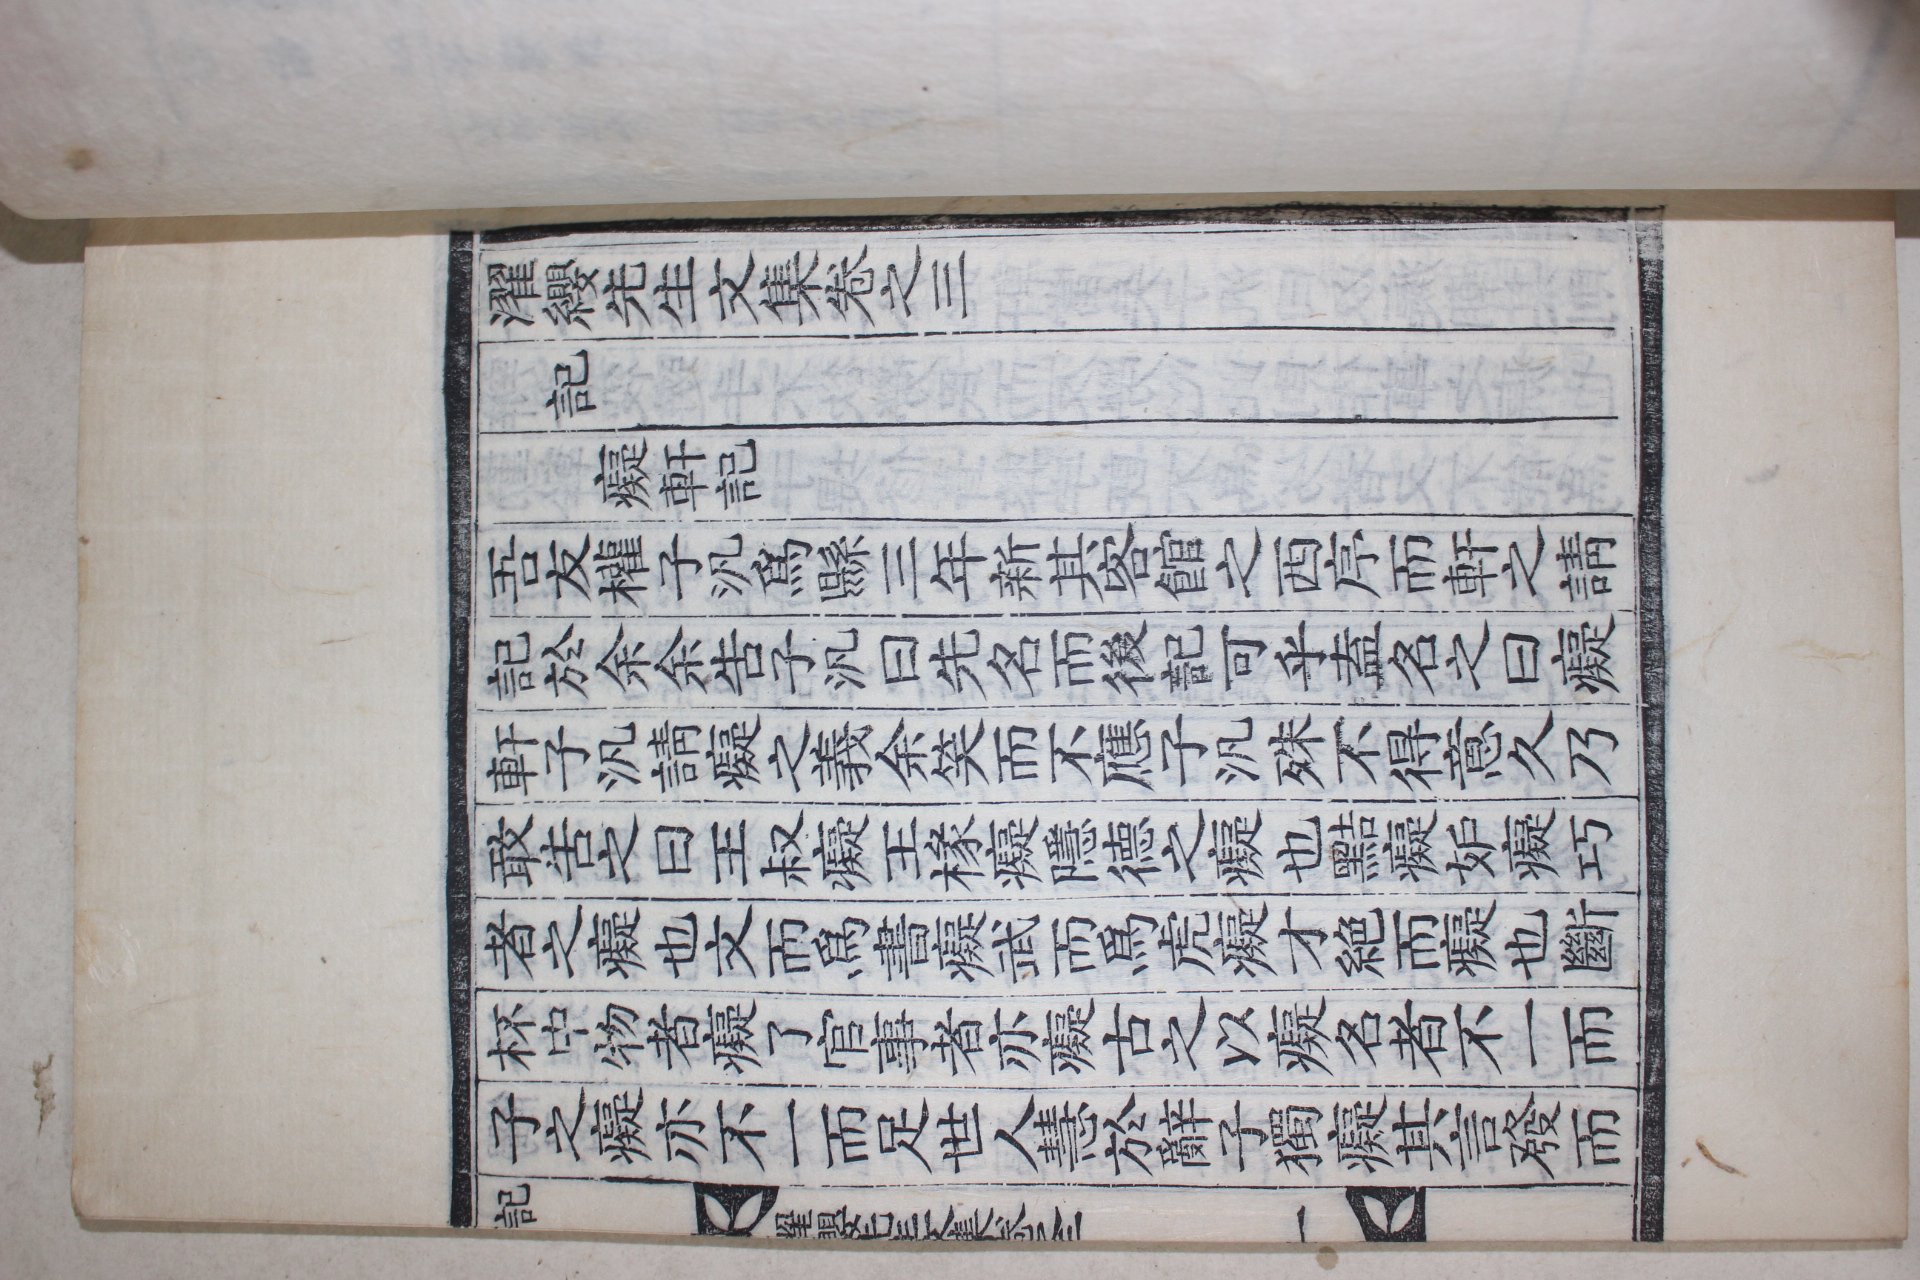 濯纓先生文集卷之三
記
癡軒記
吾友權子汎爲縣三年新其客館之西序而軒之請
記於余余告子汎曰先名而後記可乎盍名之曰癡
軒子汎請癡之義余笑而不應子汎殊不得意久乃
敢告之曰王叔癡王椽癡隱德之癡也黠癡妬癡巧
者之癡也文而爲書癡武而爲虎癡才絶而癡也斷
杯中物者癡了官事者亦癡古之以癡名者不一而
子之癡亦不一而足世人慧於辭子獨癡其言發而
記
濯纓先生文集卷三
一